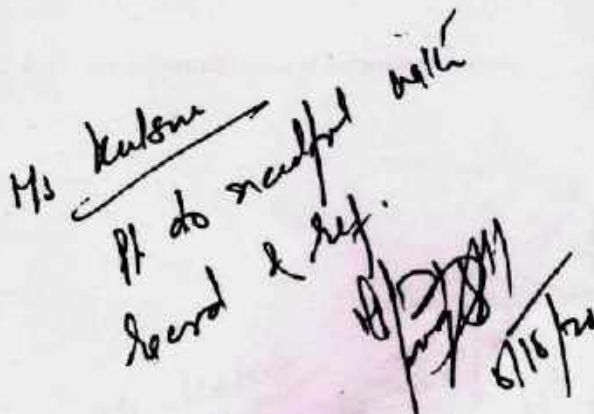 Ms Kulsum
Pl do needful with
record & ref.